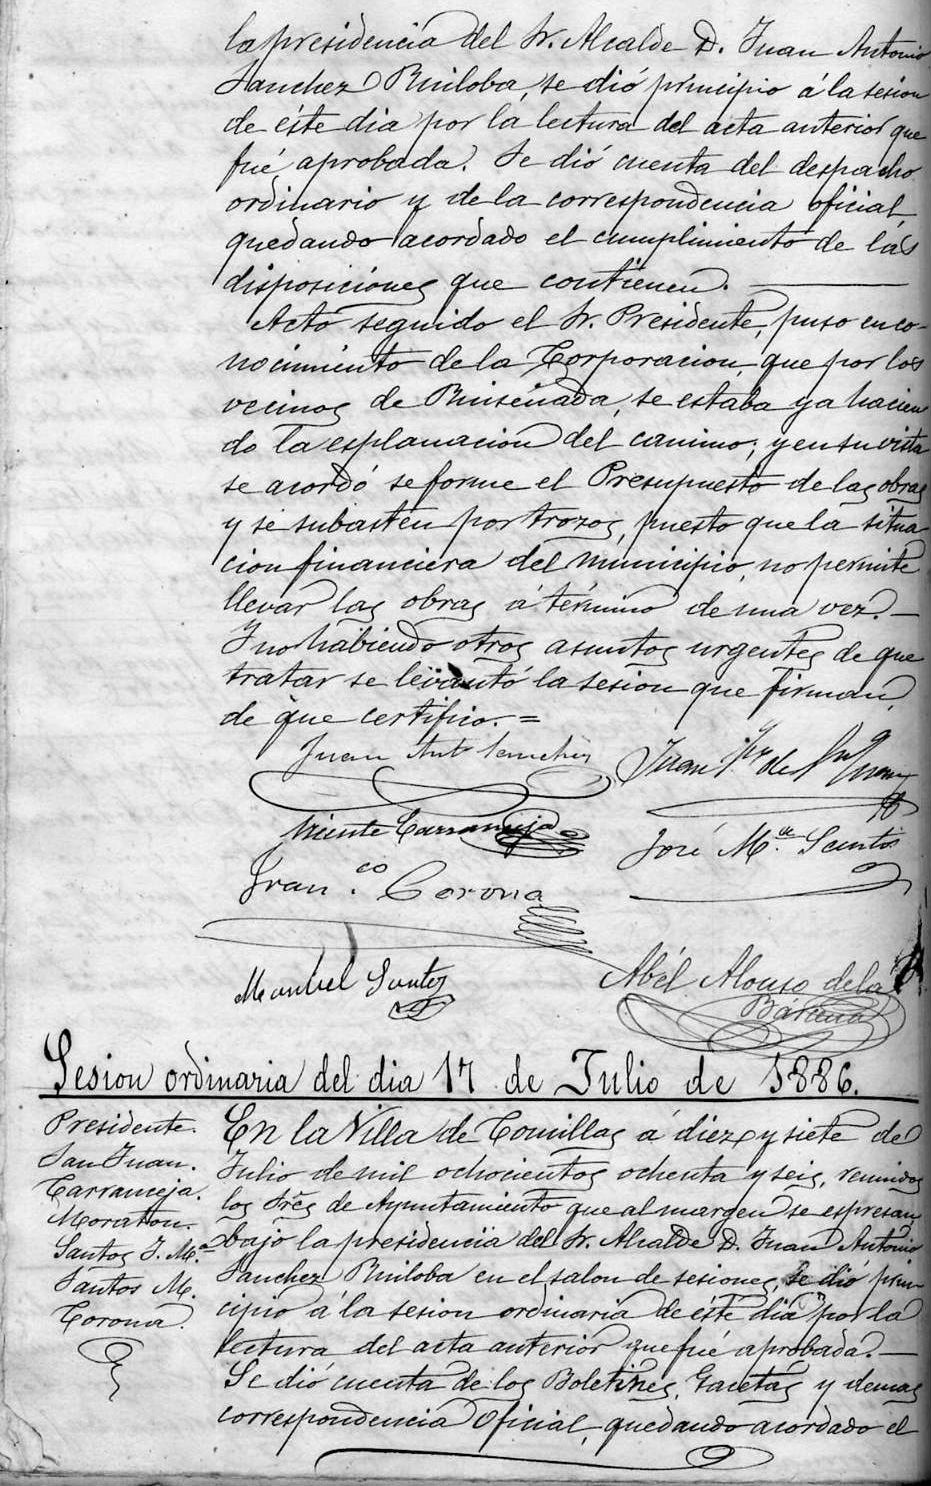 la presidencia del Sr. Alcalde D. Juan Antonio
Sanchez Ruiloba, se dió principio á la sesion
de éste dia por la lectura del acta anterior que
fué aprobada. Se dió cuenta del despacho
ordinario y de la correspondencia oficial,
quedando acordado el cumplimiento de las
disposiciones que contienen.
Actó seguido el Sr. Presidente, puso en co-
nocimiento de la Corporacion, que por los
vecinos de Ruiseñada, se estaba ya hacien
do la esplanacion del camino; y en su vista
se acordó se forme el Presupuesto de las obras
y se subasten por trozos, puesto que la situa
cion financiera del municipio, no permite
llevar las obras á término de una vez.
Y no habiendo otros asuntos urgentes de que
tratar se levantó la sesion que firman,
de que certifico. =
Juan Antº Sanchez
Juan
Vicente Carranceja
José M.ª de Santos
Fran.co Corona
Manuel Santos
Abél Alonso de la
Bárcena
Sesion ordinaria del dia 17 de Julio de 1886.
Presidente.
San Juan.
Carranceja.
Moraton.
Santos J. M.ª
Santos M.
Corona.
En la Villa de Comillas á diez y siete de
Julio de mil ochocientos ochenta y seis, reunidos
los Sres de Ayuntamiento que al margen se espresan
bajo la presidencia del Sr. Alcalde D. Juan Antonio
Sanchez Ruiloba en el salon de sesiones, se dió prin
cipio á la sesion ordinaria de éste dia por la
lectura del acta anterior que fué aprobada.
Se dió cuenta de los Boletines, Gacetas y demas
correspondencia Oficial, quedando acordado el